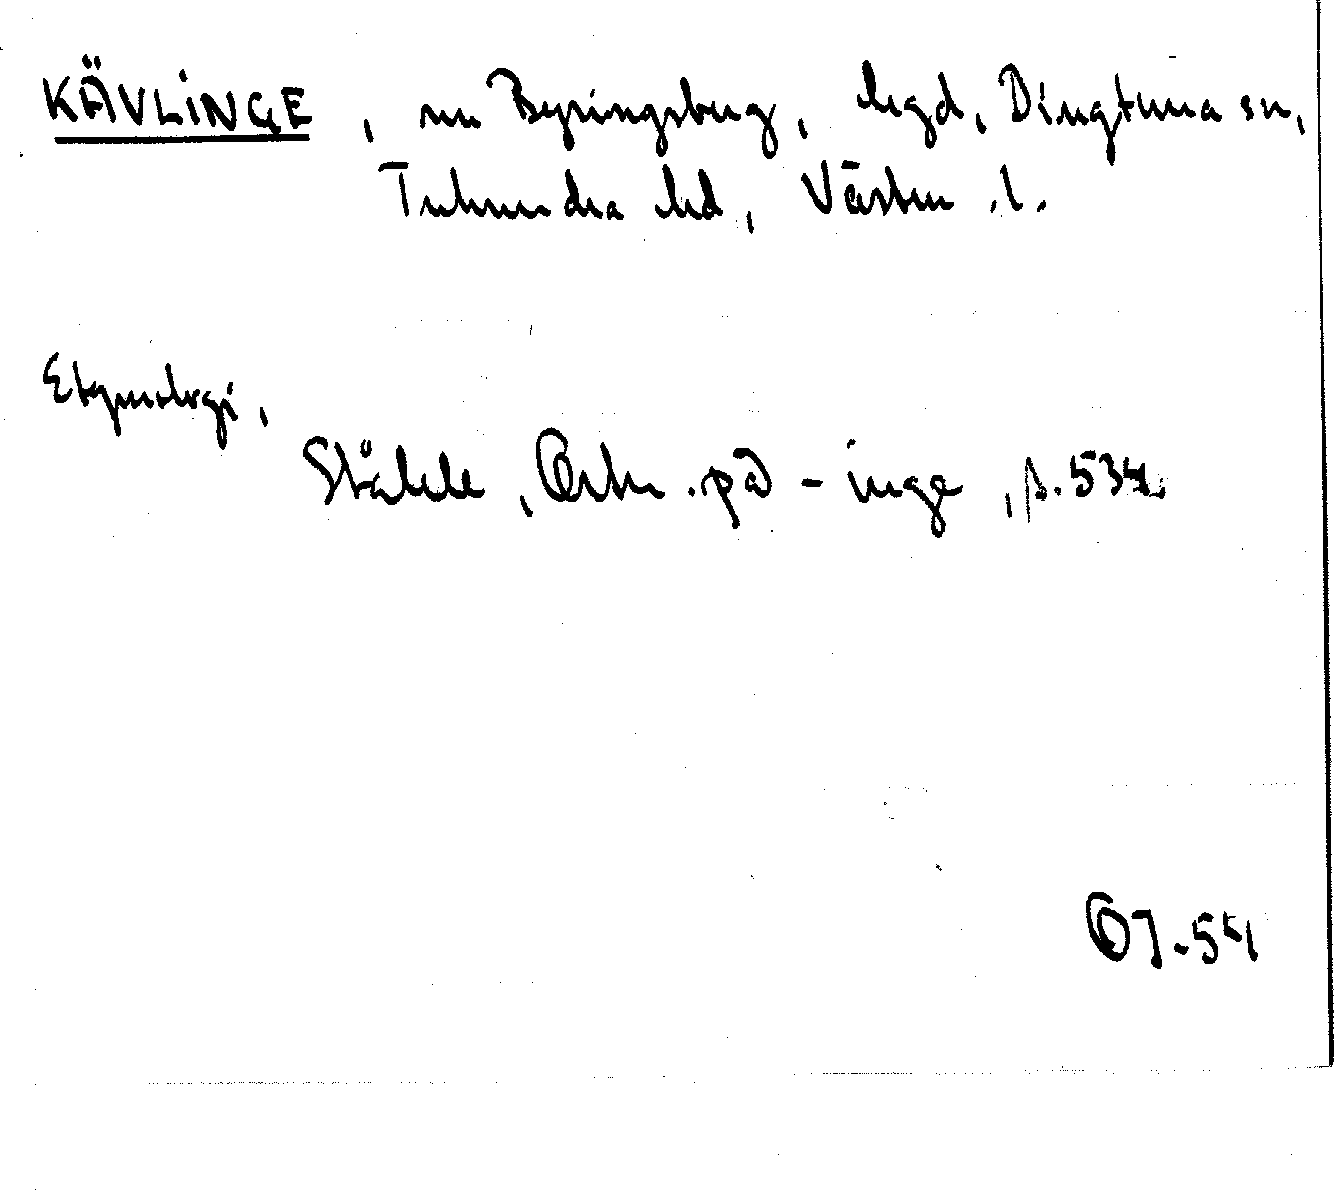 KÄVLINGE, nu Byringsberg, hgd, Dingtuna sn,
Tuhundra hd, Västm. l.
Etymologi,
Ståhle, Ortn. på -inge, s. 534.
OJ-54